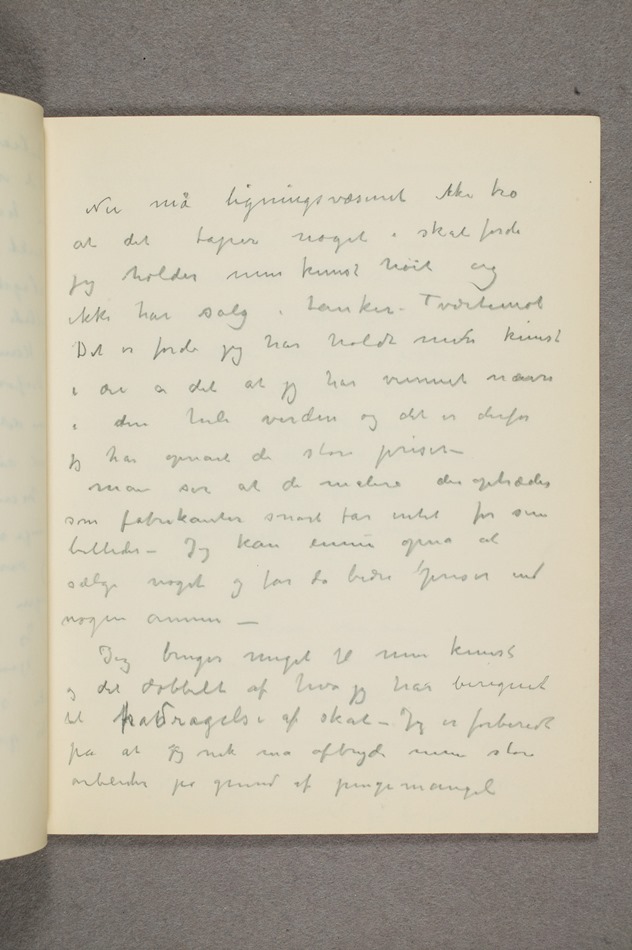 Nu må ligningsvæsnet ikke tro
at det taper noget i skat fordi
jeg holder min kunst høit og
ikke har salg i tanker – Tværtimot
Det er fordi jeg har holdt min kunst
i ære at jeg har vunnet navn
i den hele verden og det er derfor
jeg har opnået de store priser –
man ser at de malere der optræder
som fabrikanter snart får intet for sine
billeder – Jeg kan ennu opnå at
sælge noget og får da bedre priser end
nogen annen –
Jeg bruger meget til min kunst
og det dobbelte af hva jeg har beregnet
til fradragelse af skat – Jeg er forberedt
på at jeg nok må afbryde mine store
arbeider på grund af pengemangel